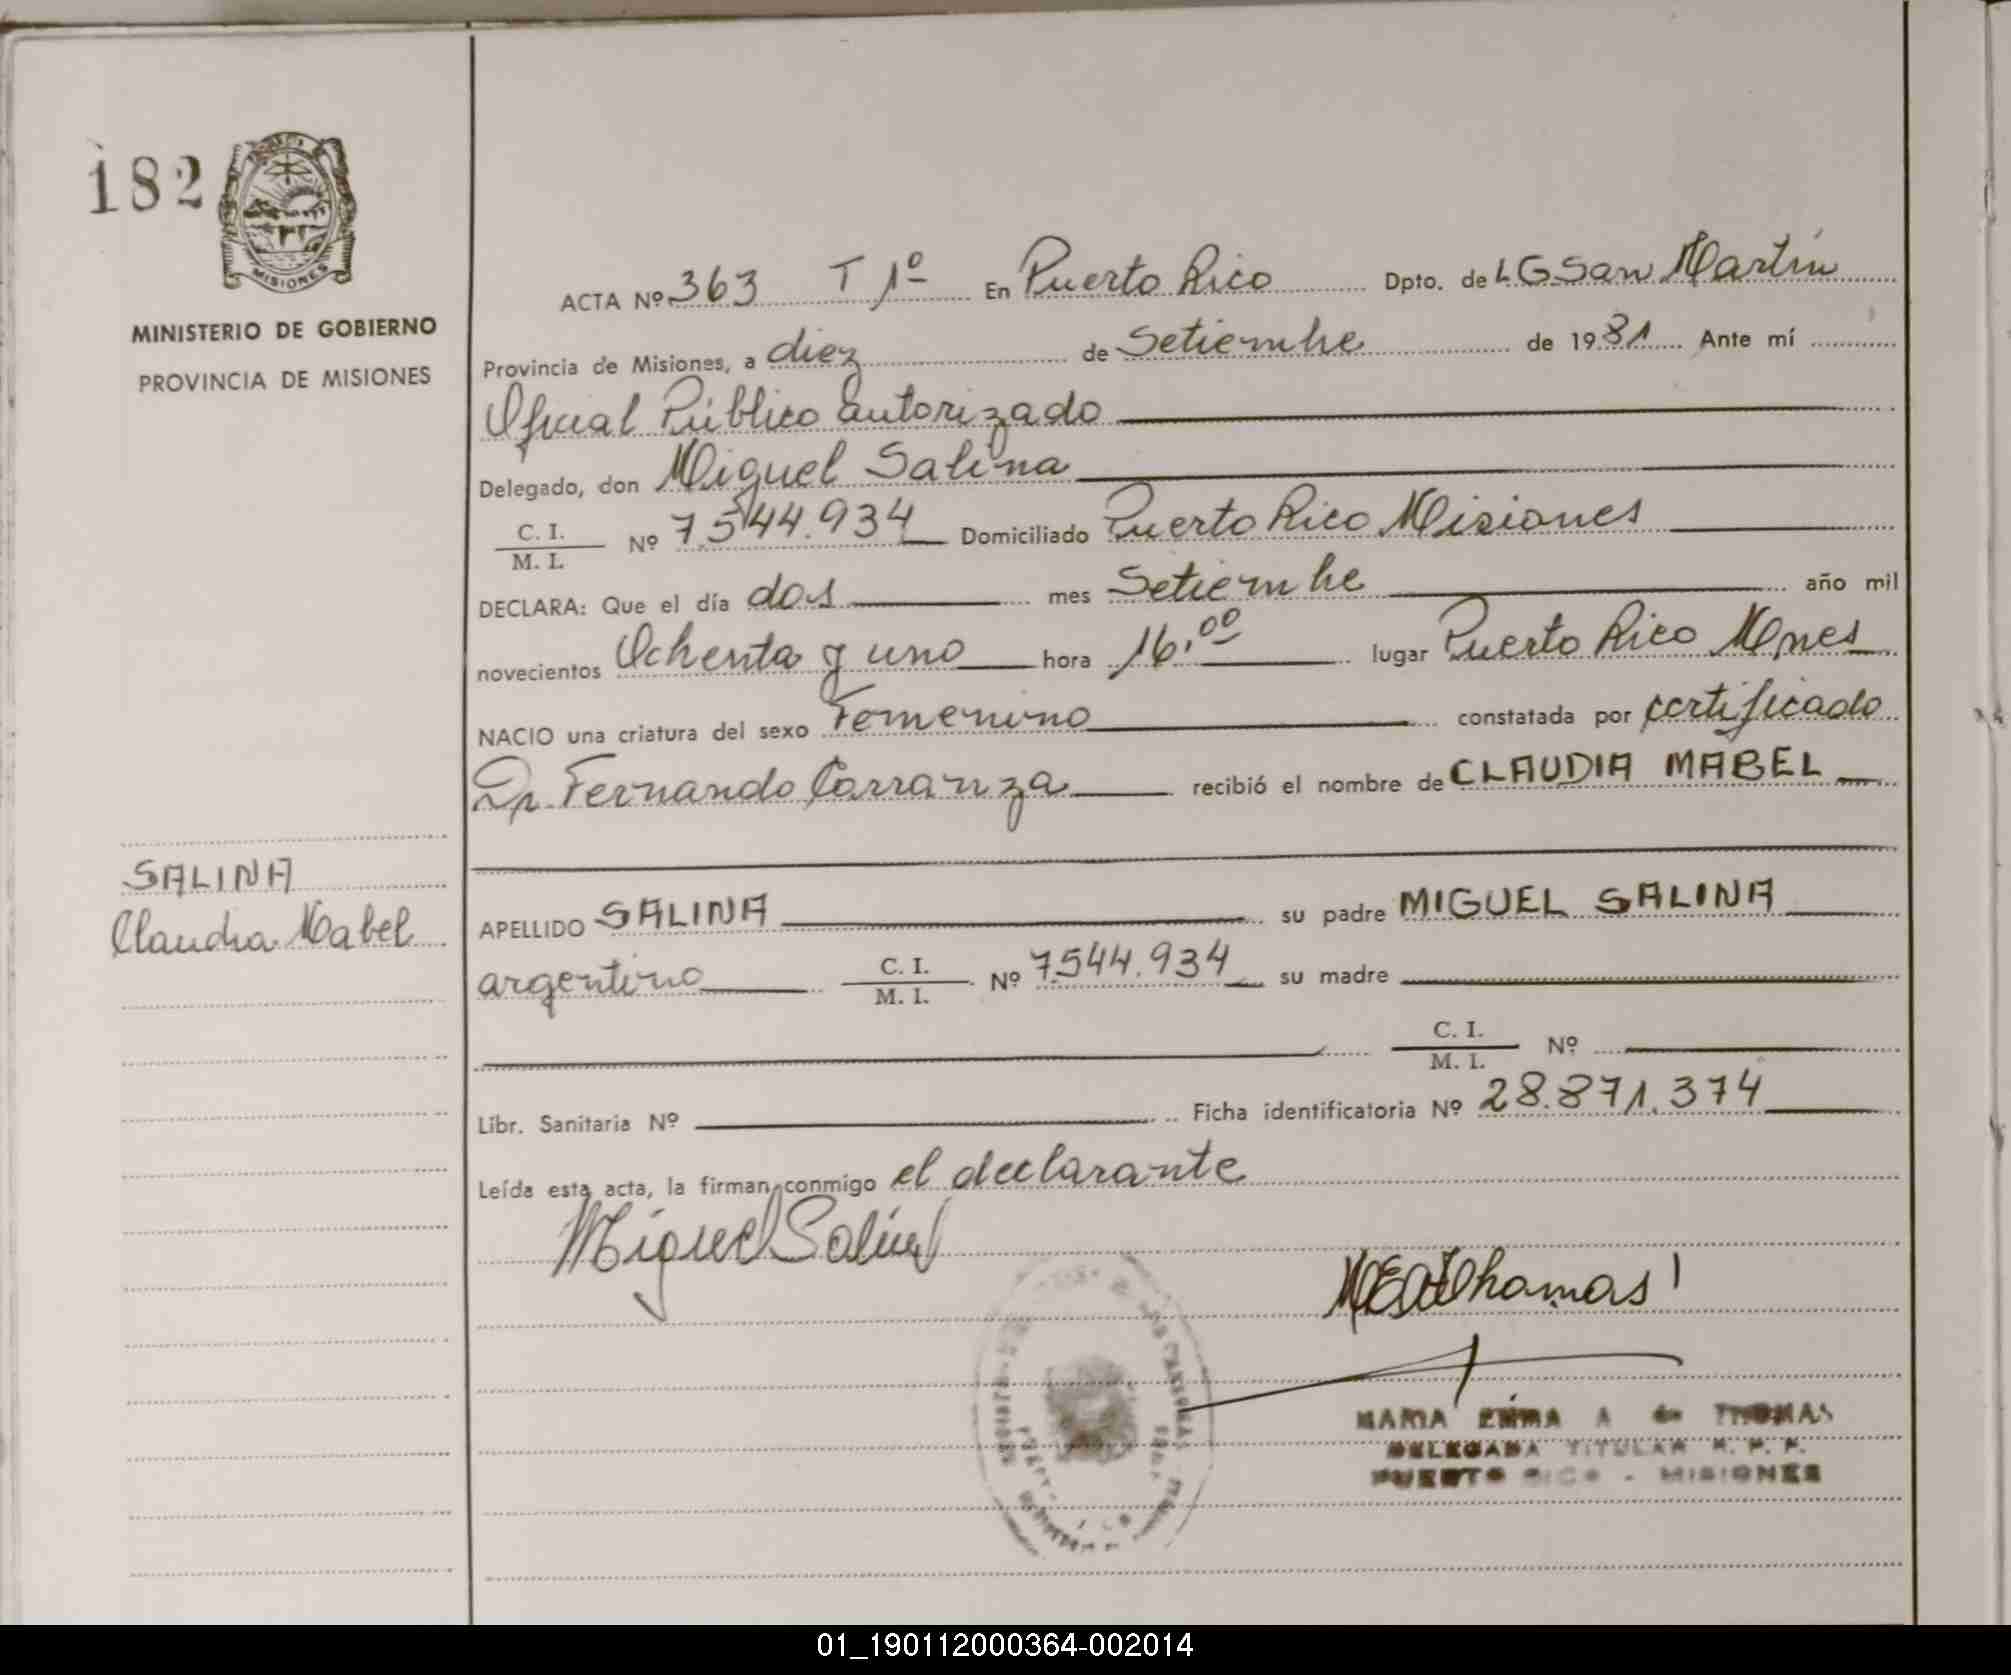 182
MISIONES
MINISTERIO DE GOBIERNO
PROVINCIA DE MISIONES
ACTA Nº 363 T 1º En Puerto Rico Dpto. de L G San Martín
Provincia de Misiones, a diez de Setiembre de 1981 Ante mí
Oficial Público autorizado
Delegado, don Miguel Salina
C. I.
M. I. Nº 7.544.934 Domiciliado Puerto Rico Misiones
DECLARA: Que el día dos mes Setiembre año mil
novecientos Ochenta y uno hora 16,00 lugar Puerto Rico Mnes
NACIO una criatura del sexo Femenino constatada por certificado
Dr. Fernando Carranza recibió el nombre de CLAUDIA MABEL
SALINA
Claudia Mabel
APELLIDO SALINA su padre MIGUEL SALINA
argentino C. I.
M. I. Nº 7.544.934 su madre
C. I.
M. I. Nº
Libr. Sanitaria Nº Ficha identificatoria Nº 28.871.374
Leída esta acta, la firman conmigo el declarante
Miguel Salina
MEAdThomas
MARIA EMMA A de THOMAS
DELEGADA TITULAR R. P. P.
PUERTO RICO - MISIONES
01_190112000364-002014